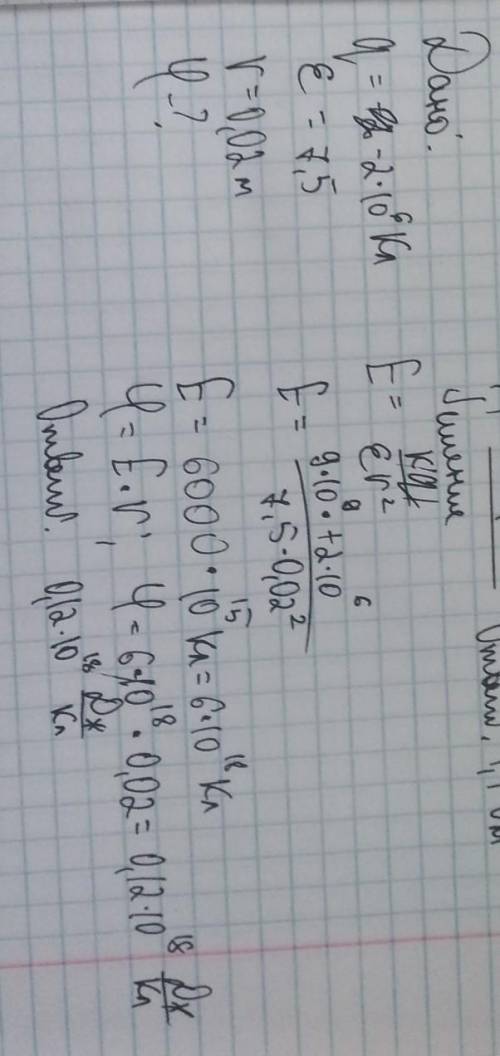 Ответ.
Дано:
q = -2·10⁶ Кл
ε = 7,5
r = 0,02 м
φ - ?
Решение
E = k|q| / εr²
E = 9·10⁹·+2·10⁶ / 7,5·0,02²
E = 6000·10¹⁵ Кл = 6·10¹⁸ Кл
φ = E·r, φ = 6·10¹⁸·0,02 = 0,12·10¹⁸ Дж/Кл
Ответ. 0,12·10¹⁸ Дж/Кл